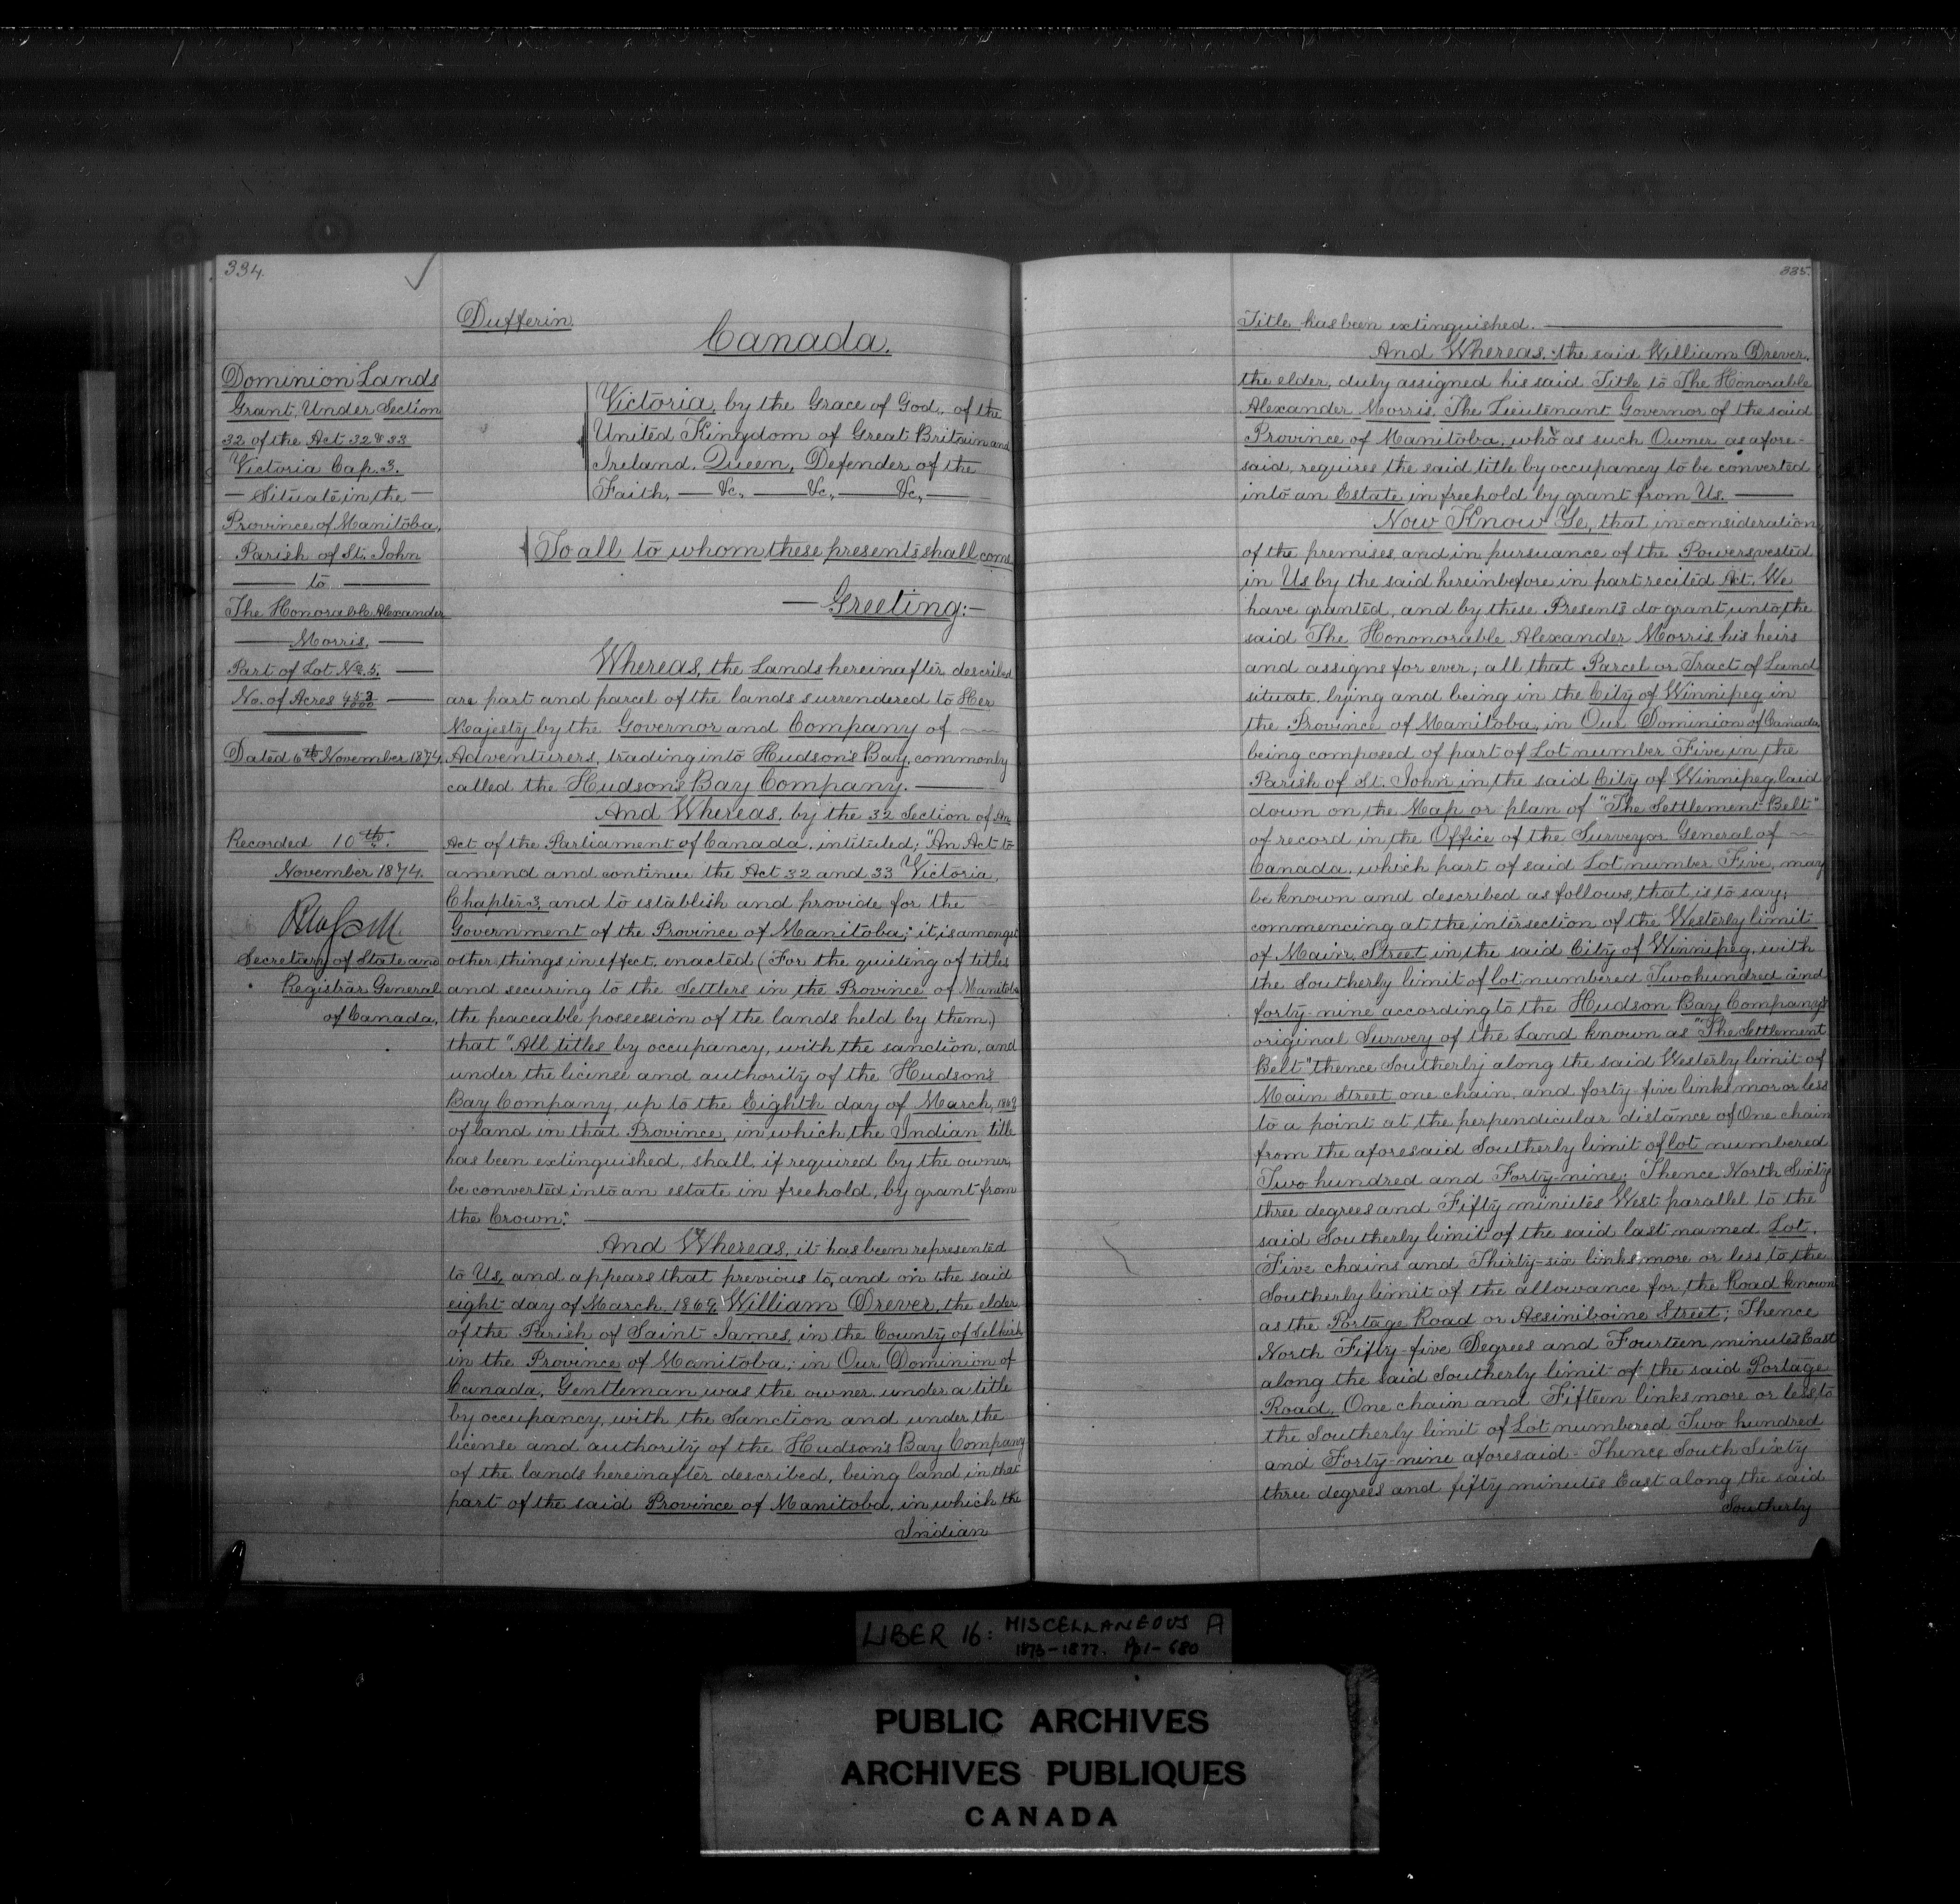 334.
Dufferin.
Canada.
Dominion Lands
Grant, Under Section
32 of the Act 32 & 33
Victoria Cap. 3.
— Situate in the —
Province of Manitoba,
Parish of St. John
— to —
The Honorable Alexander
— Morris, —
Part of Lot No. 5. —
No. of Acres 453/1000 —
Dated 6th November 1874.
Recorded 10th.
November 1874.
Secretary of State and
Registrar General
of Canada.
Victoria, by the Grace of God, of the
United Kingdom of Great Britain and
Ireland, Queen, Defender of the
Faith, — &c., — &c., — &c., —
To all to whom these presents shall come
— Greeting:—
Whereas, the Lands hereinafter described
are part and parcel of the lands surrendered to Her
Majesty by the Governor and Company of
Adventurers, trading into Hudson's Bay, commonly
called the Hudson's Bay Company. —
And Whereas, by the 32 Section of An
Act of the Parliament of Canada, intituled; "An Act to
amend and continue the Act 32 and 33 Victoria,
Chapter 3, and to establish and provide for the
Government of the Province of Manitoba;" it is amongst
other things in effect, enacted (For the quieting of titles
and securing to the Settlers in the Province of Manitoba
the peaceable possession of the lands held by them,)
that "All titles by occupancy, with the sanction, and
under the license and authority of the Hudson's
Bay Company, up to the Eighth day of March, 1869
of land in that Province, in which the Indian title
has been extinguished, shall, if required by the owner,
be converted into an estate in freehold, by grant from
the Crown." —
And Whereas, it has been represented
to Us, and appears that previous to, and on the said
eight day of March, 1869, William Drever, the elder
of the Parish of Saint James, in the County of Selkirk
in the Province of Manitoba; in Our Dominion of
Canada, Gentleman was the owner under a title
by occupancy, with the Sanction and under the
license and authority of the Hudson's Bay Company
of the lands hereinafter described, being land in that
part of the said Province of Manitoba, in which the
Indian
335.
Title has been extinguished. —
And Whereas, the said William Drever,
the elder, duly assigned his said Title to The Honorable
Alexander Morris, The Lieutenant Governor of the said
Province of Manitoba, who as such Owner as afore-
said, requires the said title by occupancy to be converted
into an Estate in freehold by grant from Us. —
Now Know Ye, that in consideration
of the premises and in pursuance of the Powers vested
in Us by the said hereinbefore in part recited Act, We
have granted, and by these Presents do grant unto the
said The Hononorable Alexander Morris his heirs
and assigns for ever; all that Parcel or Tract of Land
situate, lying and being in the City of Winnipeg in
the Province of Manitoba, in Our Dominion of Canada
being composed of part of Lot number Five in the
Parish of St. John in the said City of Winnipeg laid
down on the Map or plan of "The Settlement Belt"
of record in the Office of the Surveyor General of
Canada, which part of said Lot number Five, may
be known and described as follows, that is to say;
commencing at the intersection of the Westerly limit
of Main Street in the said City of Winnipeg, with
the Southerly limit of lot numbered Two hundred and
forty-nine according to the Hudson Bay Company's
original Survey of the Land known as "The Settlement
Belt" thence Southerly along the said Westerly limit of
Main Street one chain and forty-five links mor or less
to a point at the perpendicular distance of One chain
from the aforesaid Southerly limit of lot numbered
Two hundred and Forty-nine; Thence North Sixty
three degrees and Fifty minutes West parallel to the
said Southerly limit of the said last named Lot,
Five chains and Thirty-six links more or less to the
Southerly limit of the allowance for the Road known
as the Portage Road or Assiniboine Street; Thence
North Fifty-five Degrees and Fourteen minutes East
along the said Southerly limit of the said Portage
Road, One chain and Fifteen links more or less to
the Southerly limit of Lot numbered Two hundred
and Forty-nine aforesaid - Thence South Sixty
three degrees and fifty minutes East along the said
Southerly
LIBER 16: MISCELLANEOUS A
1873-1877. Pp 1-680
PUBLIC ARCHIVES
ARCHIVES PUBLIQUES
CANADA